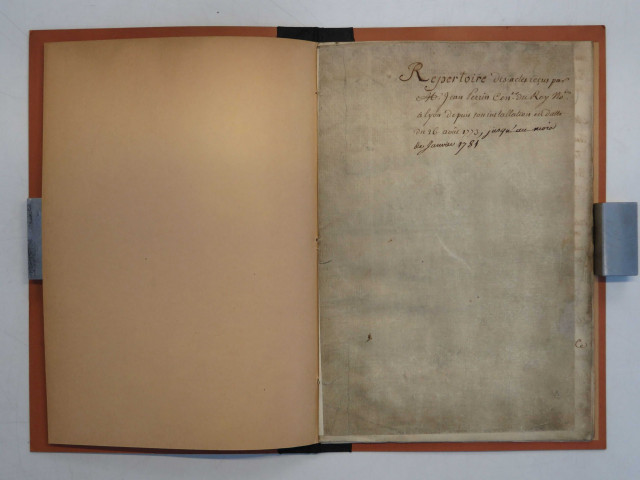 Repertoire des actes reçus par
Me. Jean Perrin Conr. du Roy Nore.
a Lyon depuis son installation en datte
du 26 avril 1773, jusqu'au mois
de Janvier 1781